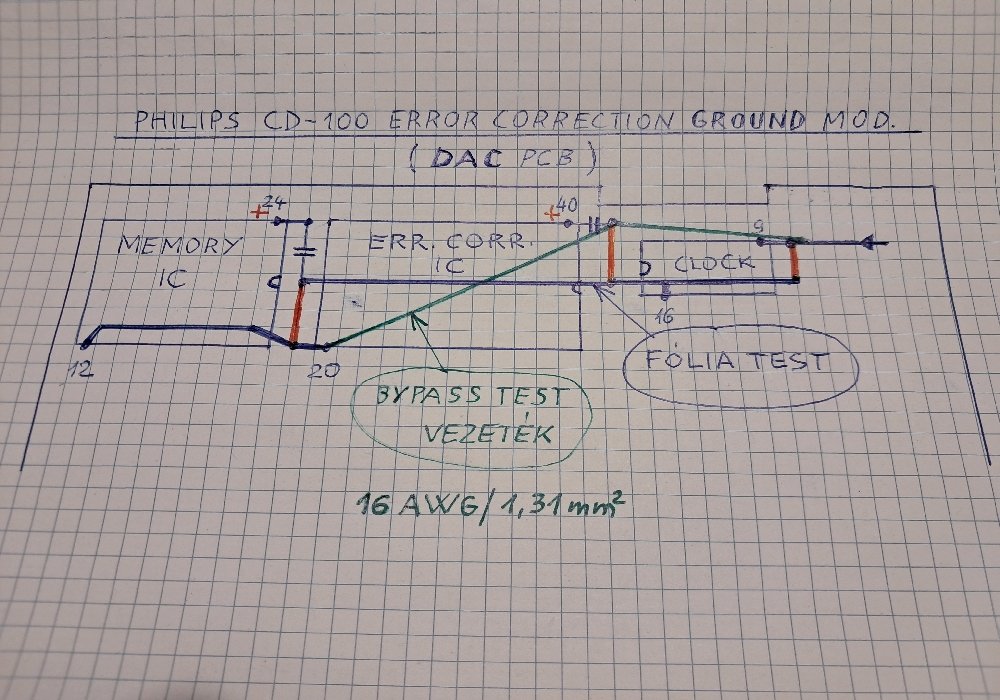 PHILIPS CD-100 ERROR CORRECTION GROUND MOD.
(DAC PCB)
+24
+40
MEMORY
IC
ERR. CORR.
IC
9
CLOCK
16
12
20
FÓLIA TEST
BYPASS TEST
VEZETÉK
16 AWG/1,31 mm²